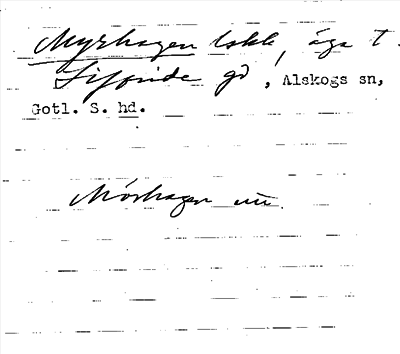 Myrhagen lskk, äga t.
Sigvride gd, Alskogs sn,
Gotl. S. hd.
Mörhagen